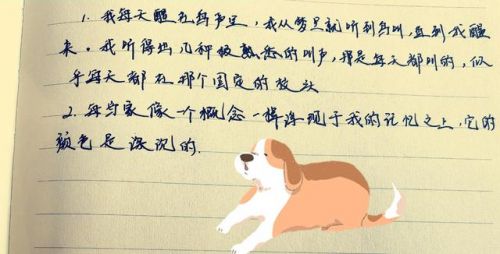 1. 我每天醒在鸟声里，我从梦里就听到鸟叫，直到我醒
来。我听得出几种极熟悉的叫声，我是每天都叫的，似
乎每天都在那个固定的枝头
2. 每每家像一个概念一样浮现于我的记忆之上，它的
颜色是深沉的.